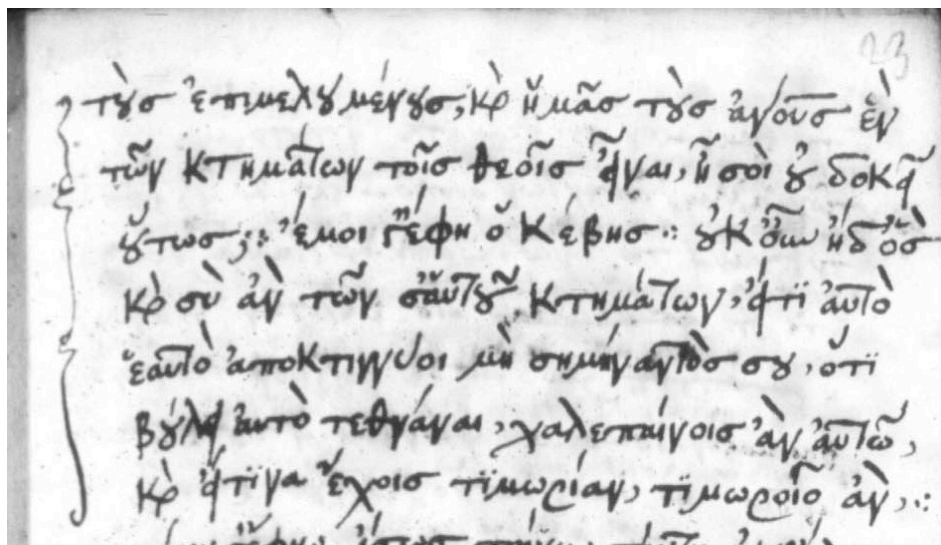 23
τοὺς ἐπιμελουμένους, καὶ ἡμᾶς τοὺς ἀνους ἓν
τῶν κτημάτων τοῖς θεοῖς εἶναι, ἢ σοὶ οὐ δοκεῖ
οὕτως; ἔμοιγε ἔφη ὁ Κέβης· οὐκοῦν ἠδ' ὃς
καὶ σὺ ἂν τῶν σαυτοῦ κτημάτων, εἴ τι αὐτὸ
ἑαυτὸ ἀποκτιννύοι μὴ σημήναντός σου, ὅτι
βούλει αὐτὸ τεθνάναι, χαλεπαίνοις ἂν αὐτῶ,
καὶ εἴ τινα ἔχοις τιμωρίαν, τιμωροῖο ἄν,